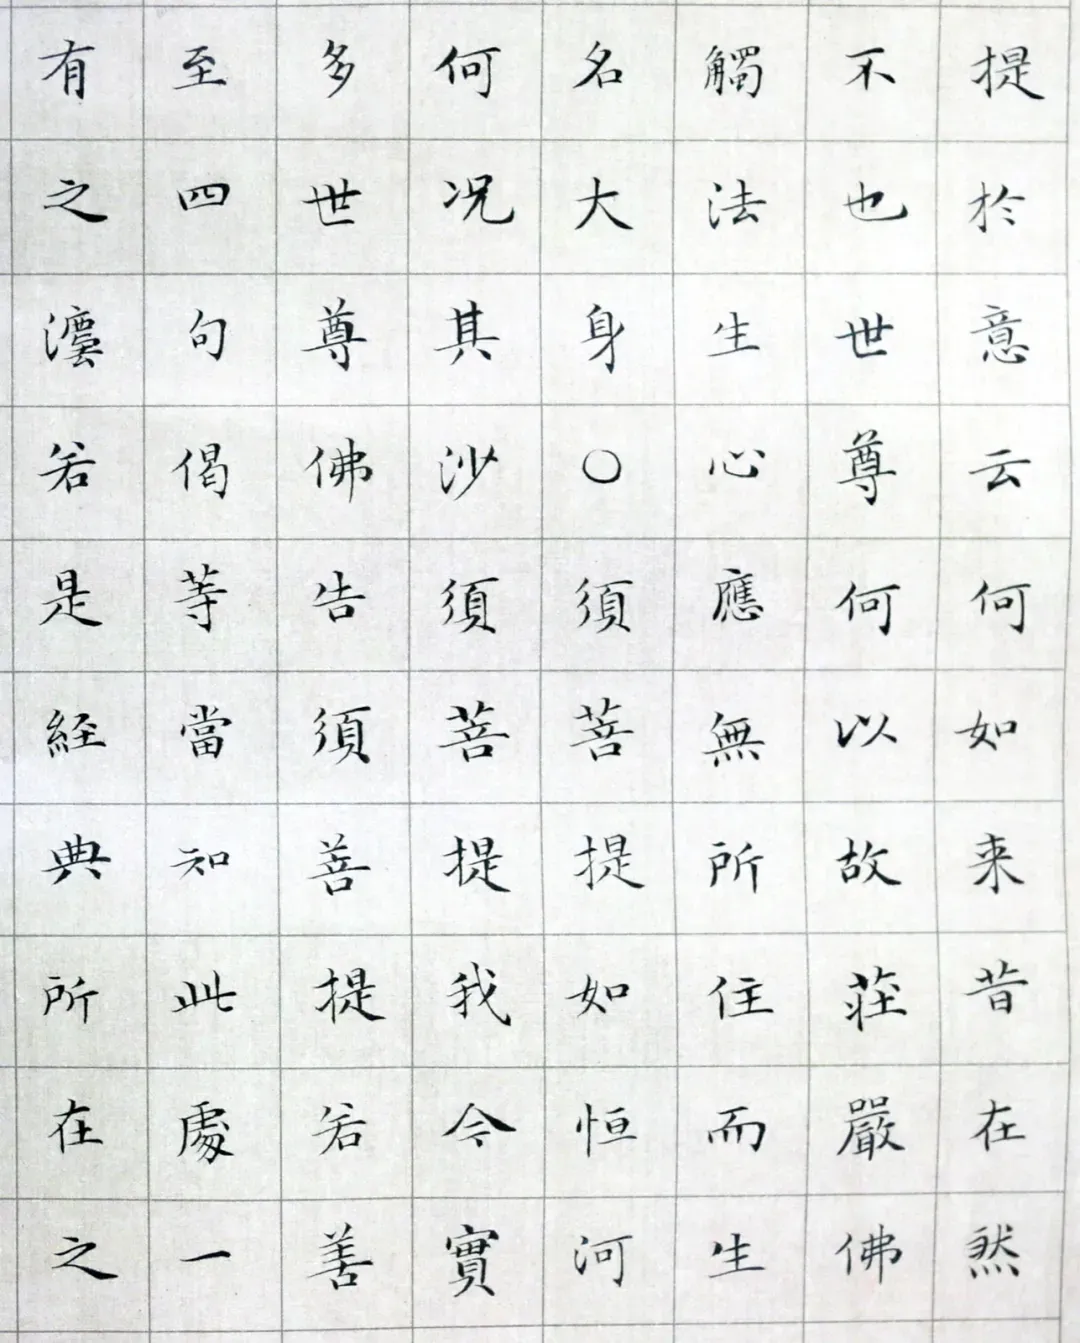 提於意云何如来昔在然
不也世尊何以故荘嚴佛
觸法生心應無所住而生
名大身○須菩提如恒河
何况其沙須菩提我今實
多世尊佛告須菩提若善
至四句偈等當知此處一
有之灋若是経典所在之